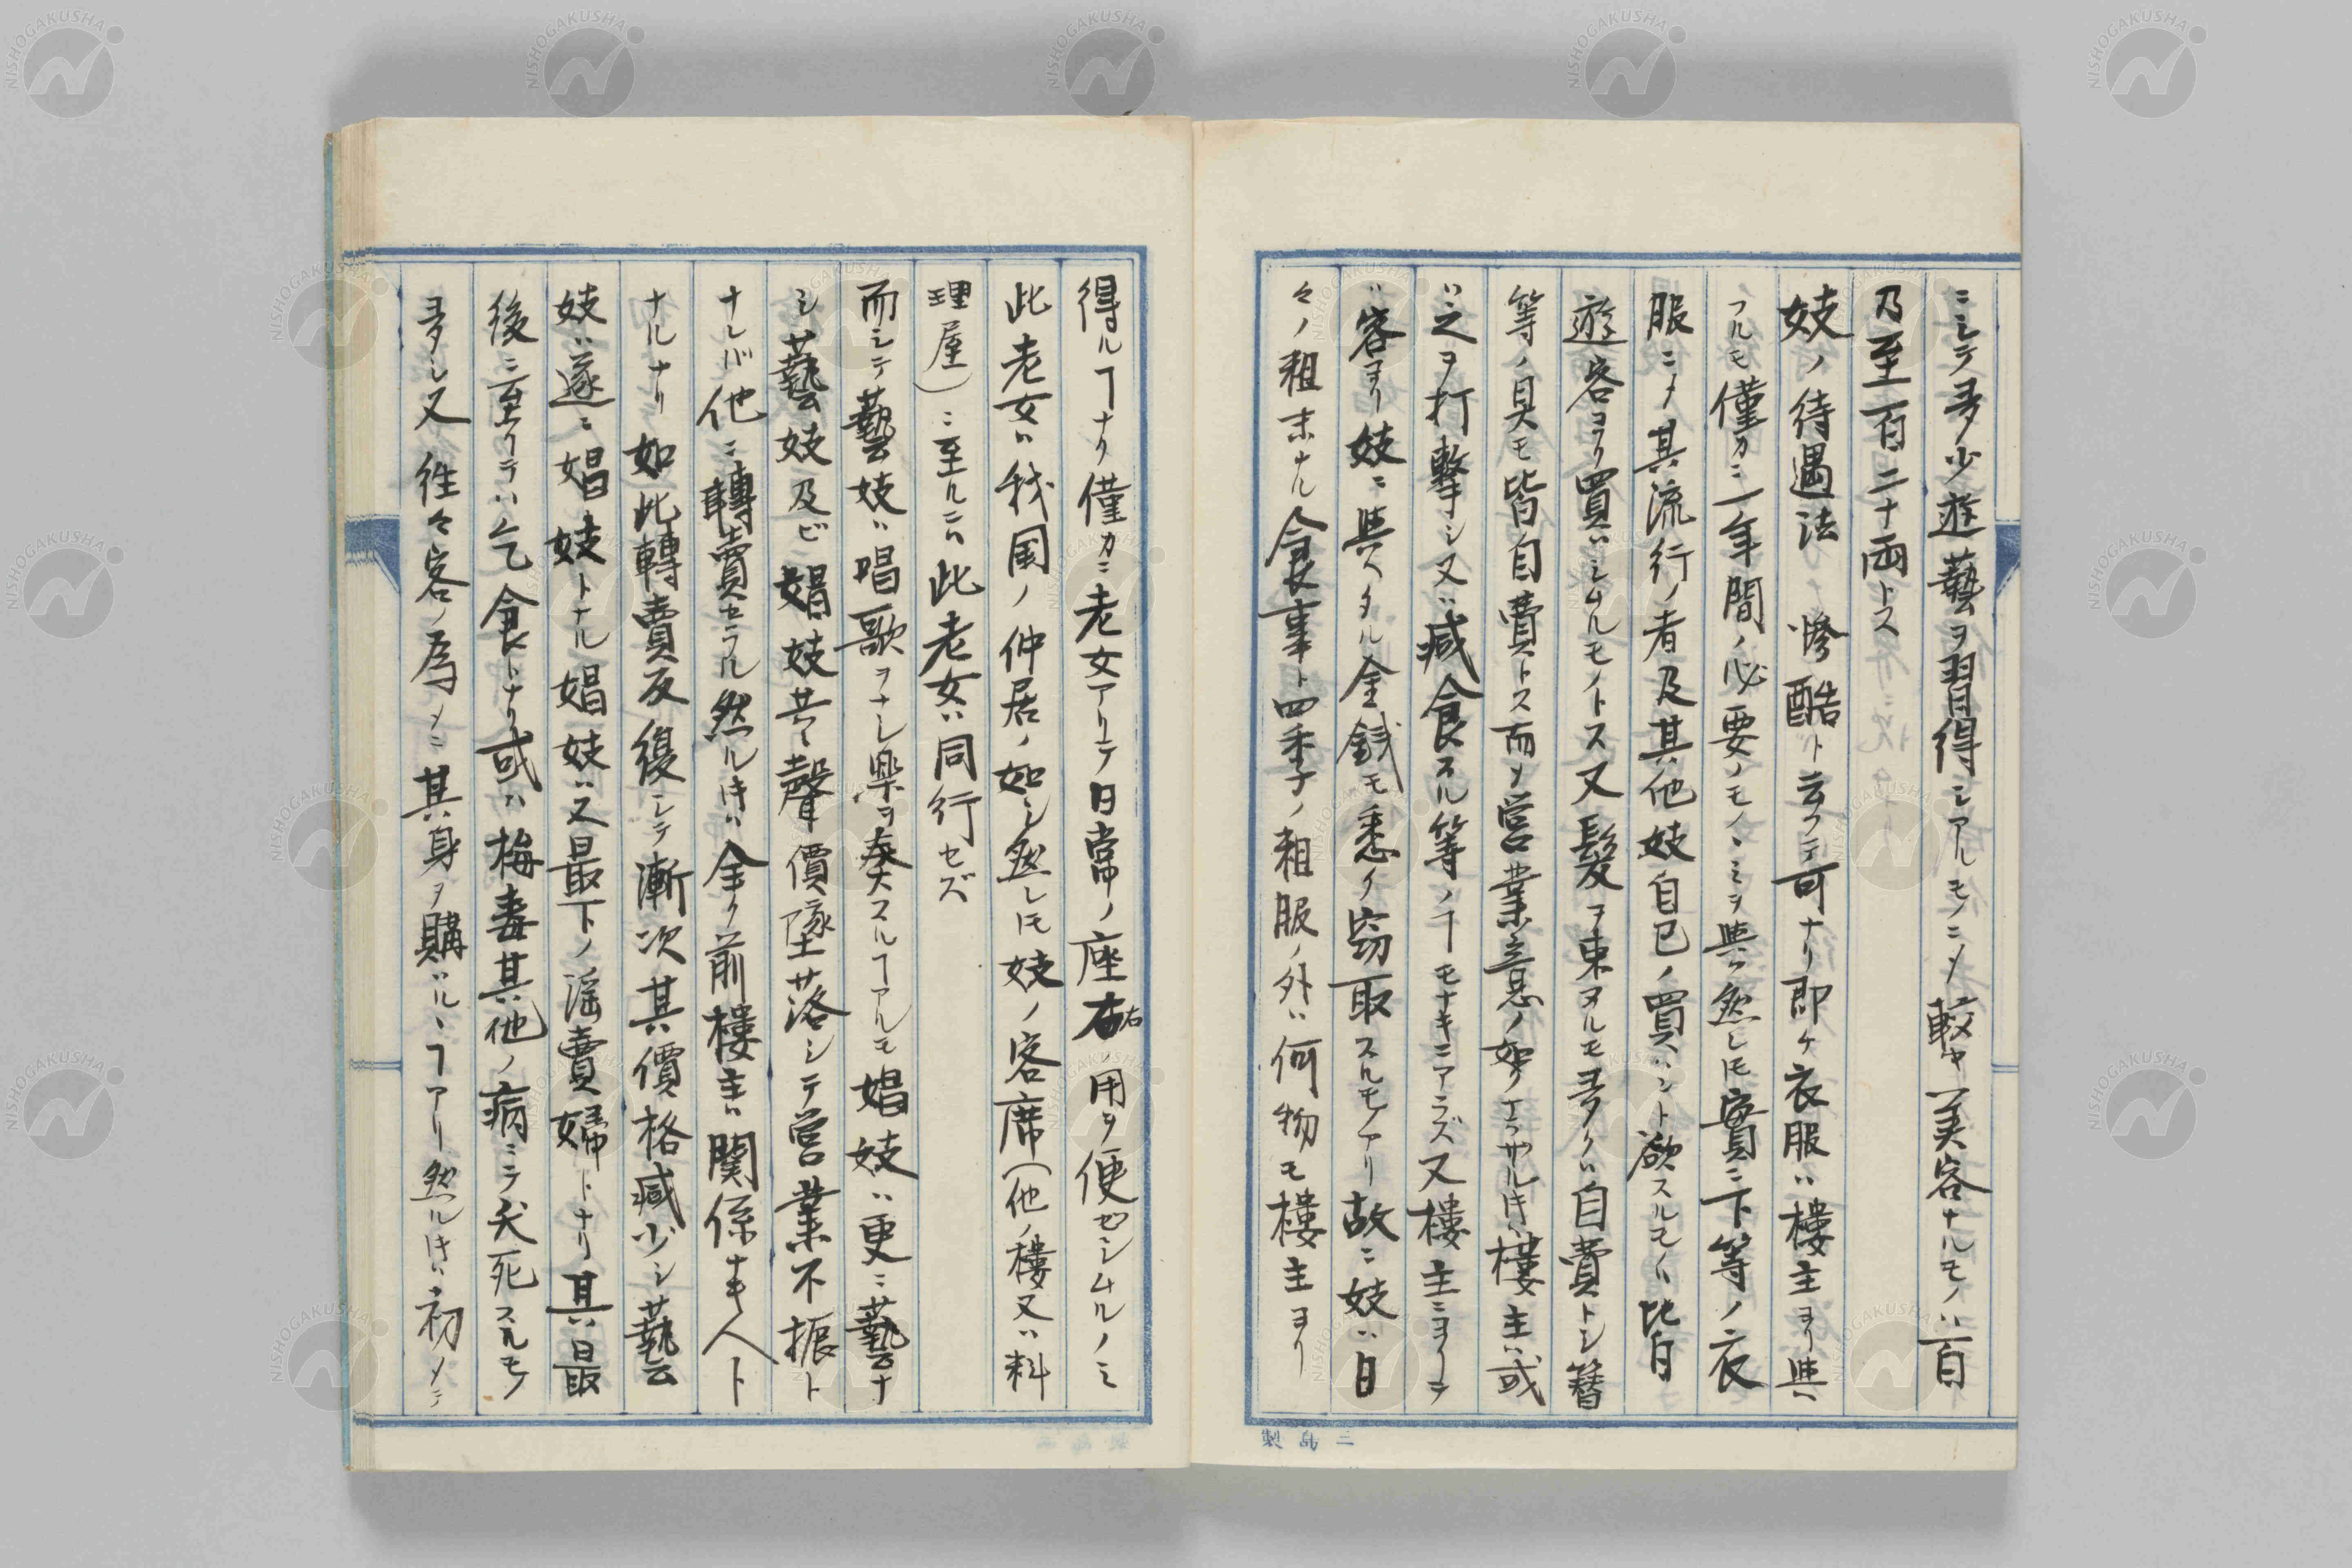 ニシテ多少遊藝ヲ習得シアルモノニメ較や美容ナルモノハ百
乃至百二十両トス
妓ノ待遇法 惨酷ト云フテ可ナリ即ケ衣服ハ樓主ヨリ與
フルモ僅カニ一年間ノ必要ノモノヽミヲ與フ然レ𪜈實ニ下等ノ衣
服ニメ其流行ノ者及其他妓自己ノ買ハント欲スルモノハ皆
遊客ヨリ買ハシムルモノトス又髮ヲ束ヌルモ多クハ自費トシ簪
等ノ具モ皆自費トス而メ営業意ノ如クナラサル𪜈ハ樓主ハ或
ハ之ヲ打撃シ又ハ減食スル等ノヿモナキニアラズ又樓主ニヨリテ
ハ客ヨリ妓ニ與ヘタル金銭モ悉ク窃取スルモノアリ故ニ妓ハ日
々ノ粗末ナル食事ト四季ノ粗服ノ外ハ何物モ樓主ヨリ
得ルヿナク僅カニ老女アリテ日常ノ座右ノ用ヲ便ゼシムルノミ
此老女ハ我国ノ仲居ノ如シ然レ𪜈妓ノ客席(他ノ樓又ハ料
理屋)ニ至ルニハ此老女ハ同行セズ
而シテ藝妓ハ唱歌ヲナシ樂ヲ奏スルヿアルモ娼妓ハ更ニ藝ナ
シ藝妓及ビ娼妓共ニ聲價墜落シテ営業不振ト
ナレバ他ニ轉賣セラル然ル𪜈ハ全ク前樓主ハ関係ナキ人ト
ナルナリ如此轉賣反復シテ漸次其價格減少シ藝
妓ハ遂ニ娼妓トナル娼妓ハ又最下ノ淫賣婦トナリ其最
後ニ至リテハ乞食トナリ或ハ梅毒其他ノ病ニテ犬死スルモノ
多シ又往々客ノ為メニ其身ヲ購ハルヽヿアリ然ル𪜈ハ初メテ
三島製
NISHOGAKUSHA